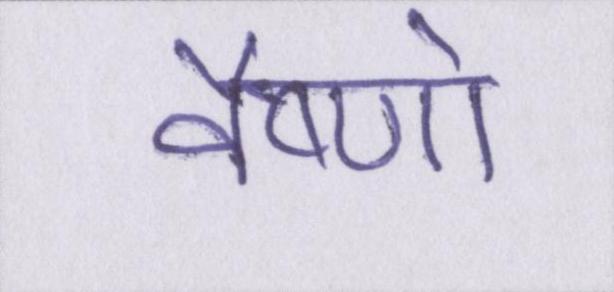 वैष्णो